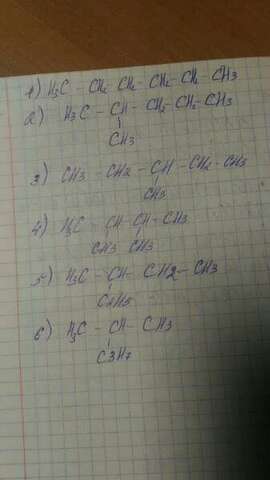 1) H3C - CH2 - CH2 - CH2 - CH2 - CH3
2) H3C - CH - CH2 - CH2 - CH3
CH3
3) CH3 - CH2 - CH - CH2 - CH3
CH3
4) H3C - CH - CH - CH3
CH3 CH3
5) H3C - CH - CH2 - CH3
C2H5
6) H3C - CH - CH3
C3H7